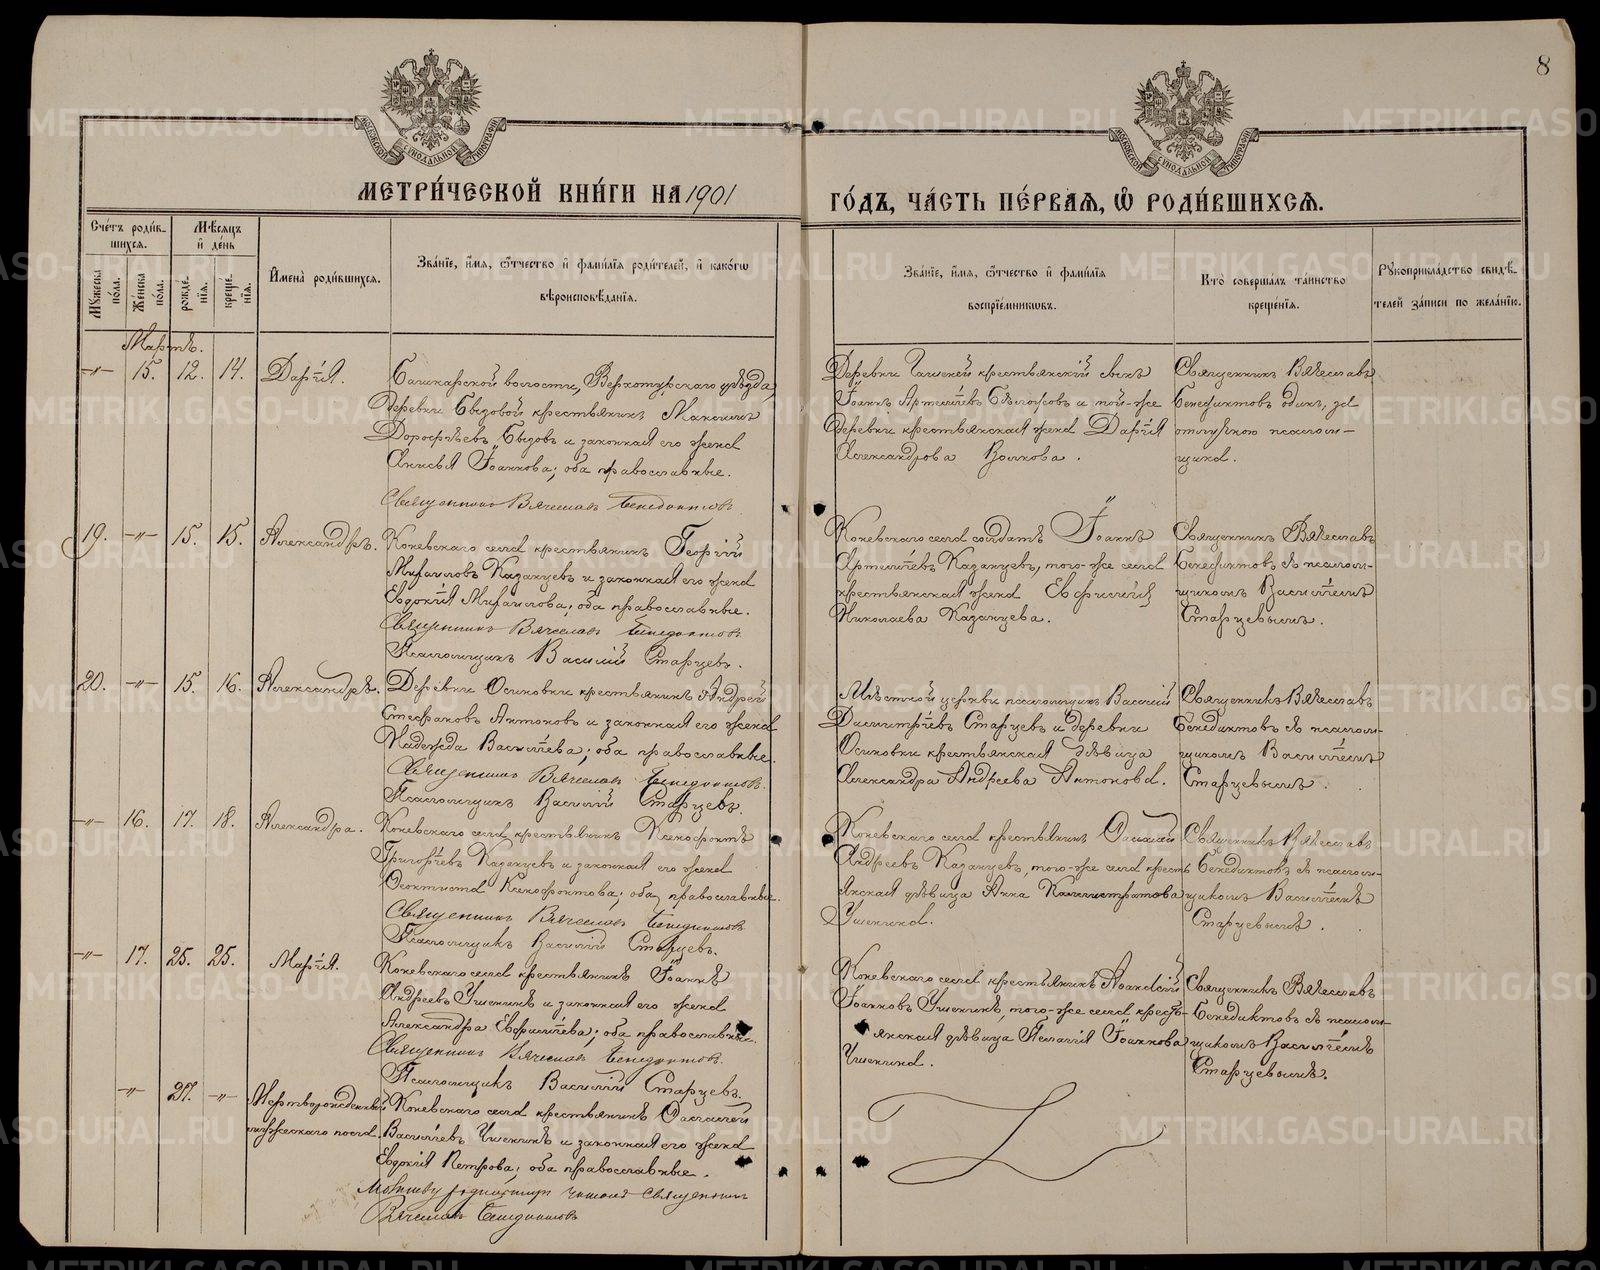 8
МОСКОВСКОЙ СѴНОДАЛЬНОЙ ТИПОГРАФІИ
МОСКОВСКОЙ СѴНОДАЛЬНОЙ ТИПОГРАФІИ
МЕТРИ́ЧЕСКОЙ КНИ́ГИ НА 1901
ГО́ДЪ, ЧА́СТЬ ПЕ́РВАѦ, Ѽ РОДИ́ВШИХСѦ.
Сче́тъ роди́в-
шихсѧ.
Мꙋжеска по́ла.
Же́нска по́ла.
Мѣ́сѧцъ и де́нь
рожде́-
нїѧ.
креще́-
нїѧ.
Имена̀ роди́вшихсѧ.
Зва́нїе, и́мѧ, ѻ́тчество и фами́лїѧ роди́телей, и како́гѡ
вѣроисповѣ́данїѧ.
Зва́нїе, и́мѧ, ѻ́тчество и фами́лїѧ
воспрїе́мникѡвъ.
Кто̀ соверша́лъ та́инство
креще́нїѧ.
Рꙋкоприкла́дство свидѣ́-
телей за́писи по жела́нїю.
Мартъ.
-"- 15. 12. 14. Дарія.
Башкарской волости, Верхотурскаго уѣзда,
деревни Бызовой крестьянинъ Максимъ
Дорофѣевъ Бызовъ и законная его жена
Анисья Іоаннова; оба православные.
Священникъ Вячеславъ Бенедиктовъ
Деревни крестьянскій сынъ
Іоаннъ Артемьевъ и той-же
деревни крестьянская жена Дарія
Александрова Волкова.
Священникъ Вячеславъ
Бенедиктовъ одинъ, за
отлучкою псаломщика.
19. -"- 15. 15. Александръ.
Коневскаго села крестьянинъ Георгій
Михаиловъ Казанцевъ и законная его жена
Евдокія Михаилова; оба православные.
Священникъ Вячеславъ Бенедиктовъ
Псаломщикъ Василій Старцевъ.
Коневскаго села солдатъ Іоаннъ
Артемьевъ Казанцевъ, того-же села
крестьянская жена Евфимія
Николаева Казанцева.
Священникъ Вячеславъ
Бенедиктовъ съ псалом-
щикомъ Василіемъ
Старцевымъ.
20. -"- 15. 16. Александръ.
Деревни Осиновки крестьянинъ Андрей
Стефановъ Антоновъ и законная его жена
Надежда Васильева; оба православные.
Священникъ Вячеславъ Бенедиктовъ.
Псаломщикъ Василій Старцевъ.
Мѣстной церкви псаломщикъ Василій
Димитріевъ Старцевъ и деревни
Осиновки крестьянская дѣвица
Александра Андреева Антонова.
Священникъ Вячеславъ
Бенедиктовъ съ псалом-
щикомъ Василіемъ
Старцевымъ.
-"- 16. 17. 18. Александра.
Коневскаго села крестьянинъ Ксенофонтъ
Григорьевъ Казанцевъ и законная его жена
Феоктиста Ксенофонтова; оба православные.
Священникъ Вячеславъ Бенедиктовъ
Псаломщикъ Василій Старцевъ.
Коневскаго села крестьянинъ
Андреевъ Казанцевъ, того-же села кресть-
янская дѣвица Анна Каллистратова
Ушенина.
Священникъ Вячеславъ
Бенедиктовъ съ псалом-
щикомъ Василіемъ
Старцевымъ.
-"- 17. 25. 25. Марія.
Коневскаго села крестьянинъ Іоаннъ
Андреевъ Ушенинъ и законная его жена
Александра Евфимьева; оба православные.
Священникъ Вячеславъ Бенедиктовъ.
Псаломщикъ Василій Старцевъ.
Коневскаго села крестьянинъ
Іоанновъ Ушенинъ, того-же села кресть-
янская дѣвица Пелагія Іоаннова
Ушенина.
Священникъ Вячеславъ
Бенедиктовъ съ псалом-
щикомъ Василіемъ
Старцевымъ.
-"- 27. -"- Мертворожденный
мужескаго пола.
Коневскаго села крестьянинъ
Васильевъ Ушенинъ и законная его жена
Евдокія Петрова; оба православные.
Молитву родильницѣ читалъ Священникъ
Вячеславъ Бенедиктовъ
METRIKI.GASO-URAL.RU